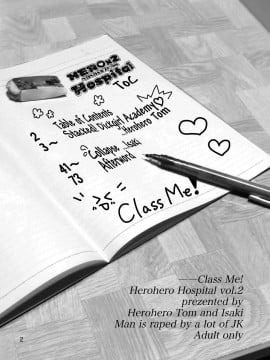 HEROx2
Hospital
ToC
2 Table of Contents
3~ Stacked! Dickgirl Academy
Herohero Tom
41~ Collapse Isaki
73 Afterword
Class Me!
——Class Me!
Herohero Hospital vol.2
prezented by
Herohero Tom and Isaki
Man is raped by a lot of JK
Adult only
2